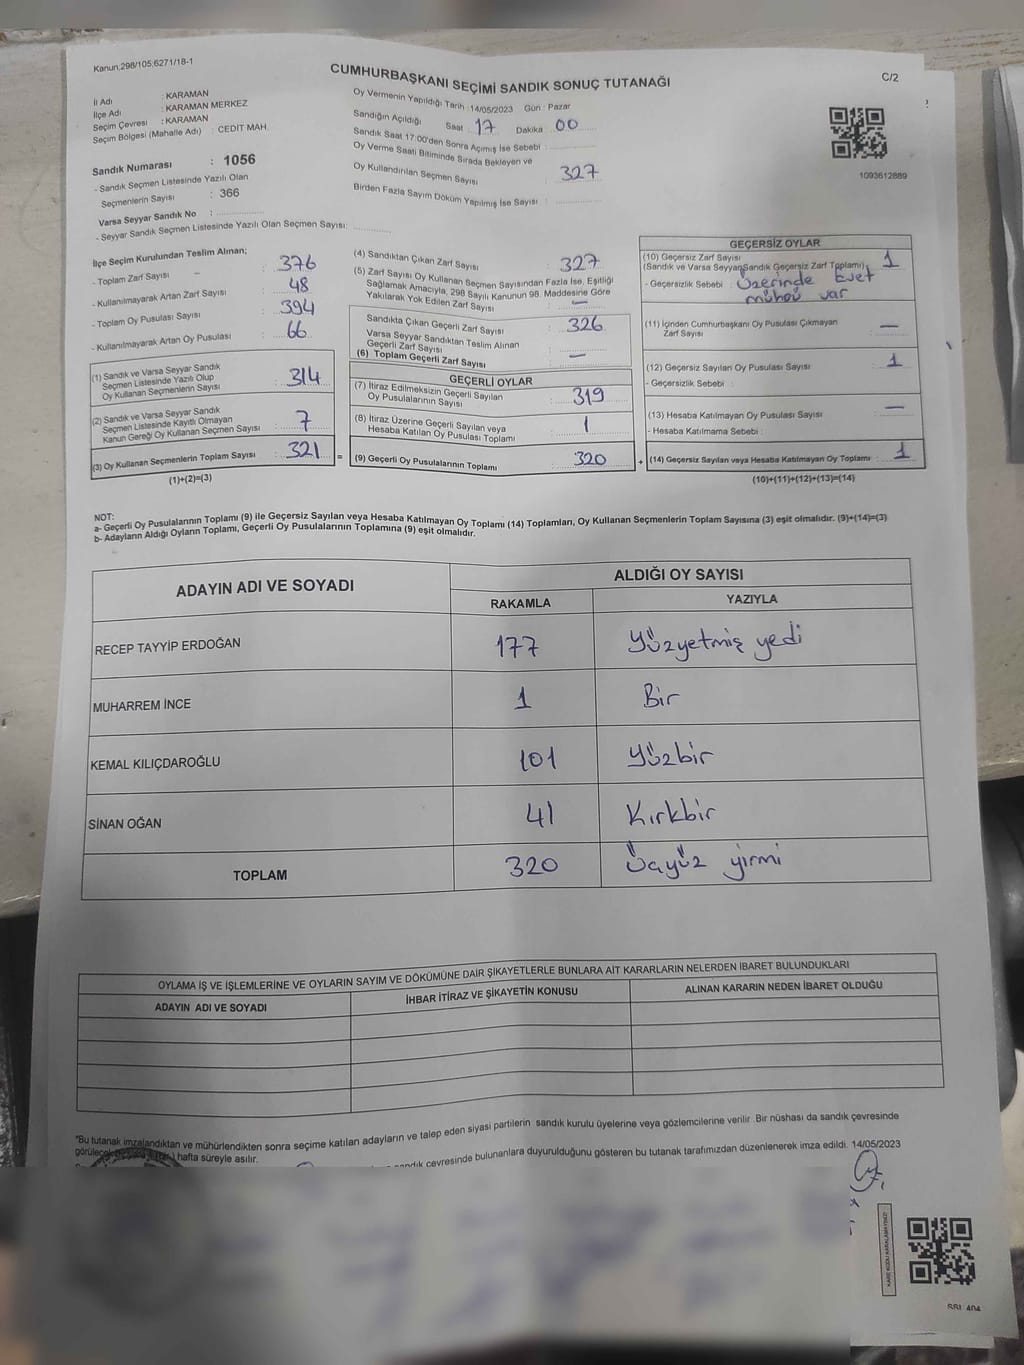 Kanun:298/105;6271/18-1
CUMHURBAŞKANI SEÇİMİ SANDIK SONUÇ TUTANAĞI
C/2
İl Adı : KARAMAN
İlçe Adı : KARAMAN MERKEZ
Seçim Çevresi : KARAMAN
Seçim Bölgesi (Mahalle Adı) : CEDİT MAH.
Sandık Numarası : 1056
- Sandık Seçmen Listesinde Yazılı Olan
Seçmenlerin Sayısı : 366
Varsa Seyyar Sandık No :
- Seyyar Sandık Seçmen Listesinde Yazılı Olan Seçmen Sayısı:
Oy Vermenin Yapıldığı Tarih :14/05/2023 Gün : Pazar
Sandığın Açıldığı Saat 17 Dakika 00
Sandık Saat 17:00'den Sonra Açımış İse Sebebi :
Oy Verme Saati Bitiminde Sırada Bekleyen ve
Oy Kullandırılan Seçmen Sayısı : 327
Birden Fazla Sayım Döküm Yapılmış İse Sayısı :
1093612889
İlçe Seçim Kurulundan Teslim Alınan;
- Toplam Zarf Sayısı – : 376
- Kullanılmayarak Artan Zarf Sayısı : 48
- Toplam Oy Pusulası Sayısı : 394
- Kullanılmayarak Artan Oy Pusulası : 66
(1) Sandık ve Varsa Seyyar Sandık
Seçmen Listesinde Yazılı Olup
Oy Kullanan Seçmenlerin Sayısı : 314
(2) Sandık ve Varsa Seyyar Sandık
Seçmen Listesinde Kayıtlı Olmayan
Kanun Gereği Oy Kullanan Seçmen Sayısı : 7
(3) Oy Kullanan Seçmenlerin Toplam Sayısı : 321 =
(1)+(2)=(3)
(4) Sandıktan Çıkan Zarf Sayısı : 327
(5) Zarf Sayısı Oy Kullanan Seçmen Sayısından Fazla İse, Eşitliği
Sağlamak Amacıyla, 298 Sayılı Kanunun 98. Maddesine Göre
Yakılarak Yok Edilen Zarf Sayısı : —
Sandıkta Çıkan Geçerli Zarf Sayısı : 326
Varsa Seyyar Sandıktan Teslim Alınan
Geçerli Zarf Sayısı
(6) Toplam Geçerli Zarf Sayısı : —
GEÇERLİ OYLAR
(7) İtiraz Edilmeksizin Geçerli Sayılan
Oy Pusulalarının Sayısı : 319
(8) İtiraz Üzerine Geçerli Sayılan veya
Hesaba Katılan Oy Pusulası Toplamı : 1
(9) Geçerli Oy Pusulalarının Toplamı : 320 +
GEÇERSİZ OYLAR
(10) Geçersiz Zarf Sayısı
(Sandık ve Varsa SeyyarSandık Geçersiz Zarf Toplamı) : 1
- Geçersizlik Sebebi : Üzerinde Evet
mührü var
(11) İçinden Cumhurbaşkanı Oy Pusulası Çıkmayan
Zarf Sayısı : —
(12) Geçersiz Sayılan Oy Pusulası Sayısı : 1
- Geçersizlik Sebebi :
(13) Hesaba Katılmayan Oy Pusulası Sayısı : —
- Hesaba Katılmama Sebebi :
(14) Geçersiz Sayılan veya Hesaba Katılmayan Oy Toplamı : 1
(10)+(11)+(12)+(13)=(14)
NOT:
a- Geçerli Oy Pusulalarının Toplamı (9) ile Geçersiz Sayılan veya Hesaba Katılmayan Oy Toplamı (14) Toplamları, Oy Kullanan Seçmenlerin Toplam Sayısına (3) eşit olmalıdır. (9)+(14)=(3)
b- Adayların Aldığı Oyların Toplamı, Geçerli Oy Pusulalarının Toplamına (9) eşit olmalıdır.
ADAYIN ADI VE SOYADI
ALDIĞI OY SAYISI
RAKAMLA YAZIYLA
RECEP TAYYİP ERDOĞAN 177 Yüzyetmiş yedi
MUHARREM İNCE 1 Bir
KEMAL KILIÇDAROĞLU 101 Yüzbir
SİNAN OĞAN 41 Kırkbir
TOPLAM 320 Üçyüz yirmi
OYLAMA İŞ VE İŞLEMLERİNE VE OYLARIN SAYIM VE DÖKÜMÜNE DAİR ŞİKAYETLERLE BUNLARA AİT KARARLARIN NELERDEN İBARET BULUNDUKLARI
ADAYIN ADI VE SOYADI İHBAR İTİRAZ VE ŞİKAYETİN KONUSU ALINAN KARARIN NEDEN İBARET OLDUĞU
"Bu tutanak imzalandıktan ve mühürlendikten sonra seçime katılan adayların ve talep eden siyasi partilerin sandık kurulu üyelerine veya gözlemcilerine verilir. Bir nüshası da sandık çevresinde
hafta süreyle asılır.
sandık çevresinde bulunanlara duyurulduğunu gösteren bu tutanak tarafımızdan düzenlenerek imza edildi. 14/05/2023